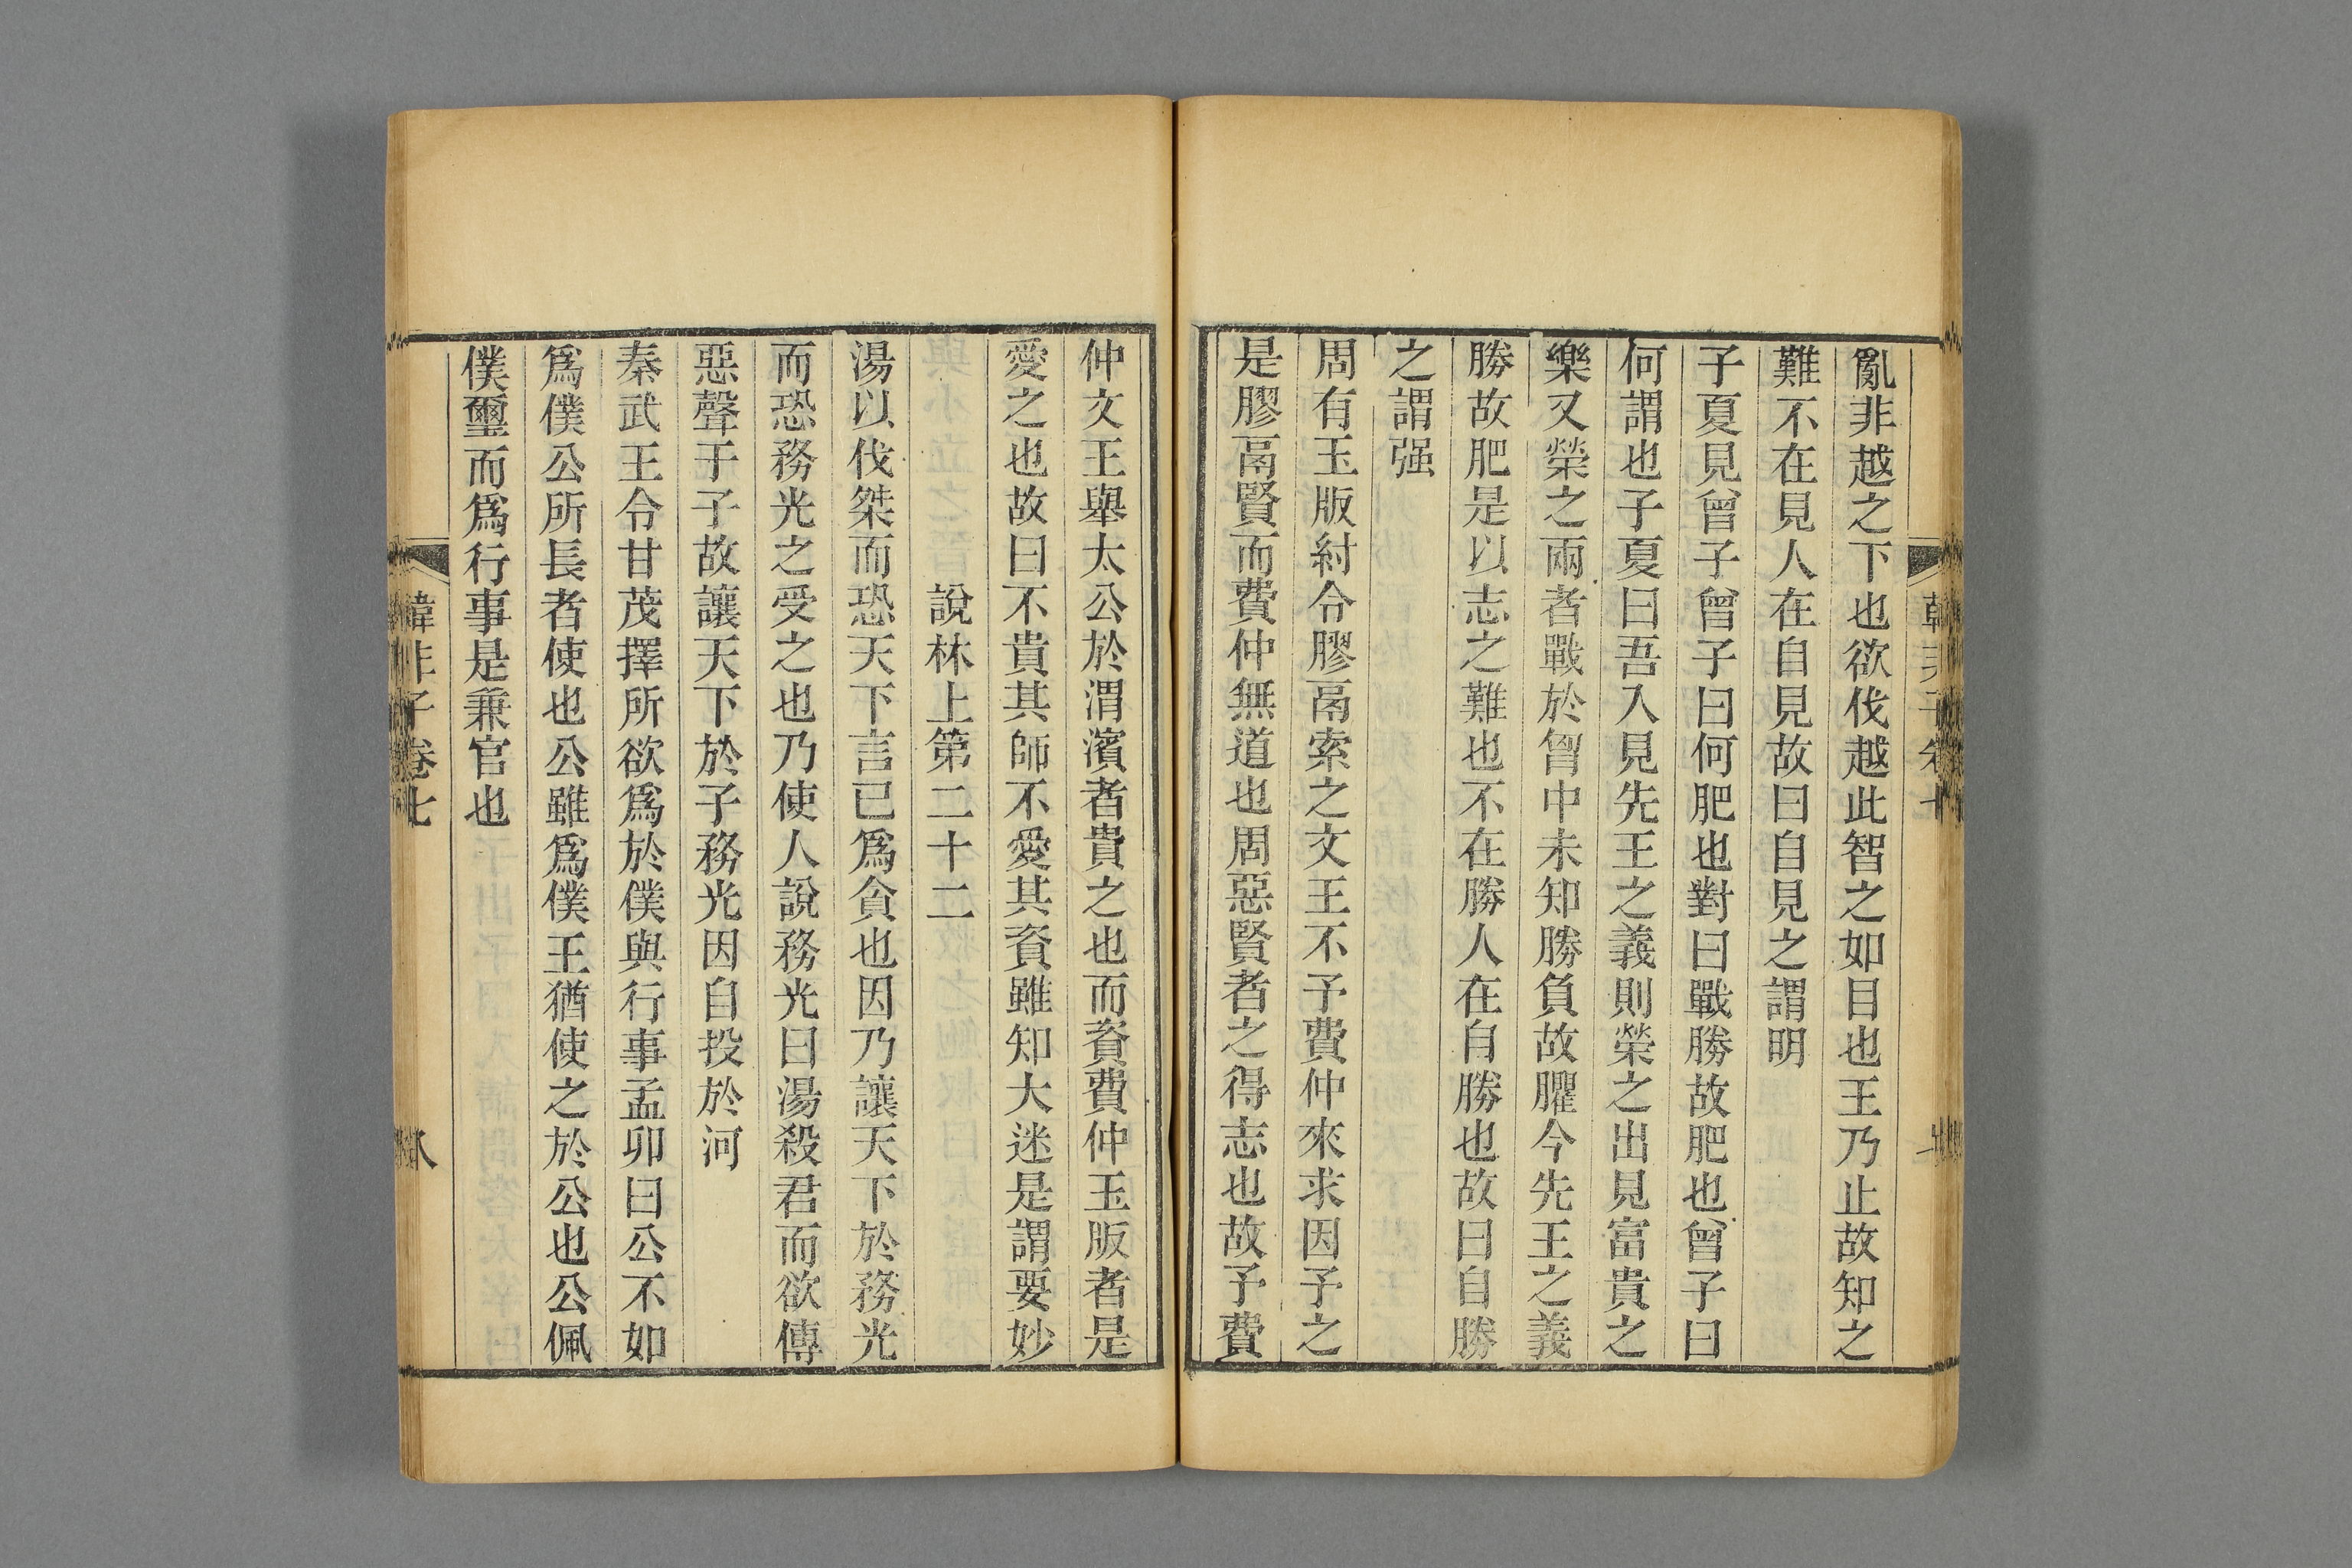 亂非越之下也欲伐越此智之如目也王乃止故知之
難不在見人在自見故曰自見之謂明
子夏見曾子曾子曰何肥也對曰戰勝故肥也曾子曰
何謂也子夏曰吾入見先王之義則榮之出見富貴之
樂又榮之兩者戰於胷中未知勝負故臞今先王之義
勝故肥是以志之難也不在勝人在自勝也故曰自勝
之謂强
周有玉版紂令膠鬲索之文王不予費仲來求因予之
是膠鬲賢而費仲無道也周惡賢者之得志也故予費
仲文王舉太公於渭濱者貴之也而資費仲玉版者是
愛之也故曰不貴其師不愛其資雖知大迷是謂要妙
說林上第二十二
湯以伐桀而恐天下言已爲貪也因乃讓天下於務光
而恐務光之受之也乃使人說務光曰湯殺君而欲傳
惡聲于子故讓天下於子務光因自投於河
秦武王令甘茂擇所欲爲於僕與行事孟卯曰公不如
爲僕公所長者使也公雖爲僕王猶使之於公也公佩
僕璽而爲行事是兼官也
韓非子卷七
八